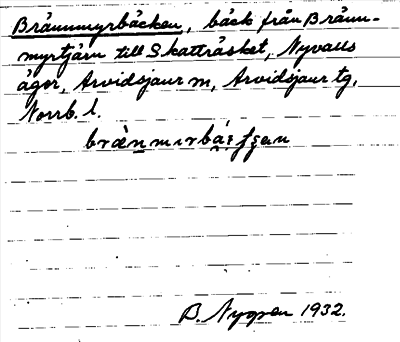 Brännmyrbäcken, bäck från Bränn-
myrtjärn till Skatträsket, Nyvalls
ägor, Arvidsjaur sn, Arvidsjaur tg,
Norrb. l.
B. Nygren 1932.